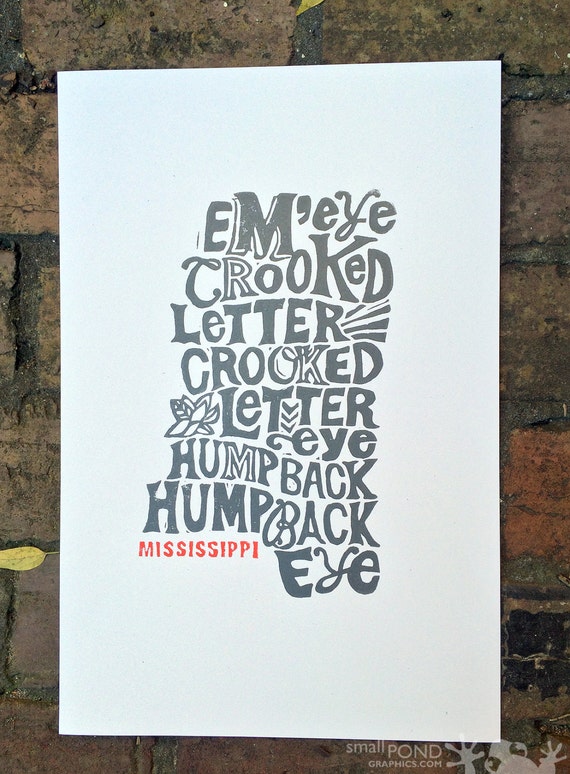 ELM'eye
CROOKeD
LeTTER
CROOKED
LeTTER
eye
HUMPBACK
HUMPBACK
MISSISSIPPI
Eye
small POND
GRAPHICS.COM